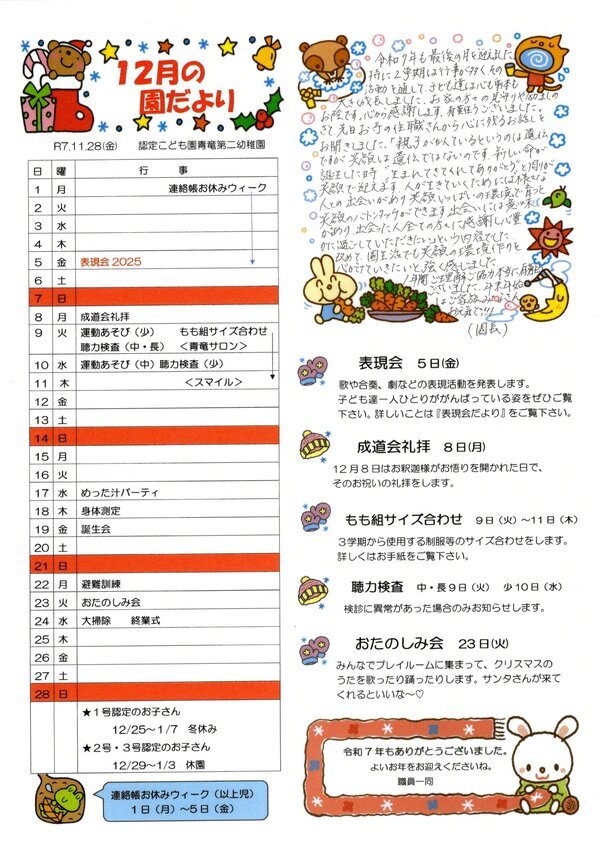 12月の
園だより
R7.11.28(金)　認定こども園青竜第二幼稚園
日 曜 行　事
1 月 連絡帳お休みウィーク
2 火
3 水
4 木
5 金 表現会2025
6 土
7 日
8 月 成道会礼拝
9 火 運動あそび（少）　もも組サイズ合わせ
聴力検査（中・長）　＜青竜サロン＞
10 水 運動あそび（中）聴力検査（少）
11 木 ＜スマイル＞
12 金
13 土
14 日
15 月
16 火
17 水 めった汁パーティ
18 木 身体測定
19 金 誕生会
20 土
21 日
22 月 避難訓練
23 火 おたのしみ会
24 水 大掃除　終業式
25 木
26 金
27 土
28 日
★1号認定のお子さん
12/25～1/7　冬休み
★2号・3号認定のお子さん
12/29～1/3　休園
連絡帳お休みウィーク（以上児）
1日（月）～5日（金）
令和7年も最後の月を迎えました。
特に2学期は行事が多く、その
活動を通して、子ども達は心も体も
大きく成長しました。お家の方々の見守りや励ましの
お陰です。心から感謝します。有難うございました。
さて先日お寺の住職さんから心に残るお話しを
お聞きしました。「親子が似ているというのは遺伝
ですが笑顔は遺伝ではないのです。新しい命が
誕生した時"生まれてきてくれてありがとう"と周りが
笑顔で迎えます。人が生きていくためには様々な
人との出会いがあり笑顔いっぱいの環境で育つと
笑顔のバトンタッチができます。出会いには意味
があり出会った人全ての方々に感謝し心豊
かに過ごしていただきたい」という内容でした。
改めて、園生活でも笑顔の環境作りを
心がけていきたいと強く感じました。
1年間ご理解ご協力本当に有難う
ございました。年末年始
はご家族みなさん
お元気で!!!
（園長）
表現会　5日(金)
歌や合奏、劇などの表現活動を発表します。
子ども達一人ひとりががんばっている姿をぜひご覧
下さい。詳しいことは『表現会だより』をご覧下さい。
成道会礼拝　8日(月)
12月8日はお釈迦様がお悟りを開かれた日で、
そのお祝いの礼拝をします。
もも組サイズ合わせ　9日（火）～11日（木）
3学期から使用する制服等のサイズ合わせをします。
詳しくはお手紙をご覧下さい。
聴力検査　中・長9日（火）　少10日（水）
検診に異常があった場合のみお知らせします。
おたのしみ会　23日(火)
みんなでプレイルームに集まって、クリスマスの
うたを歌ったり踊ったりします。サンタさんが来て
くれるといいな～♡
令和7年もありがとうございました。
よいお年をお迎えくださいね。
職員一同